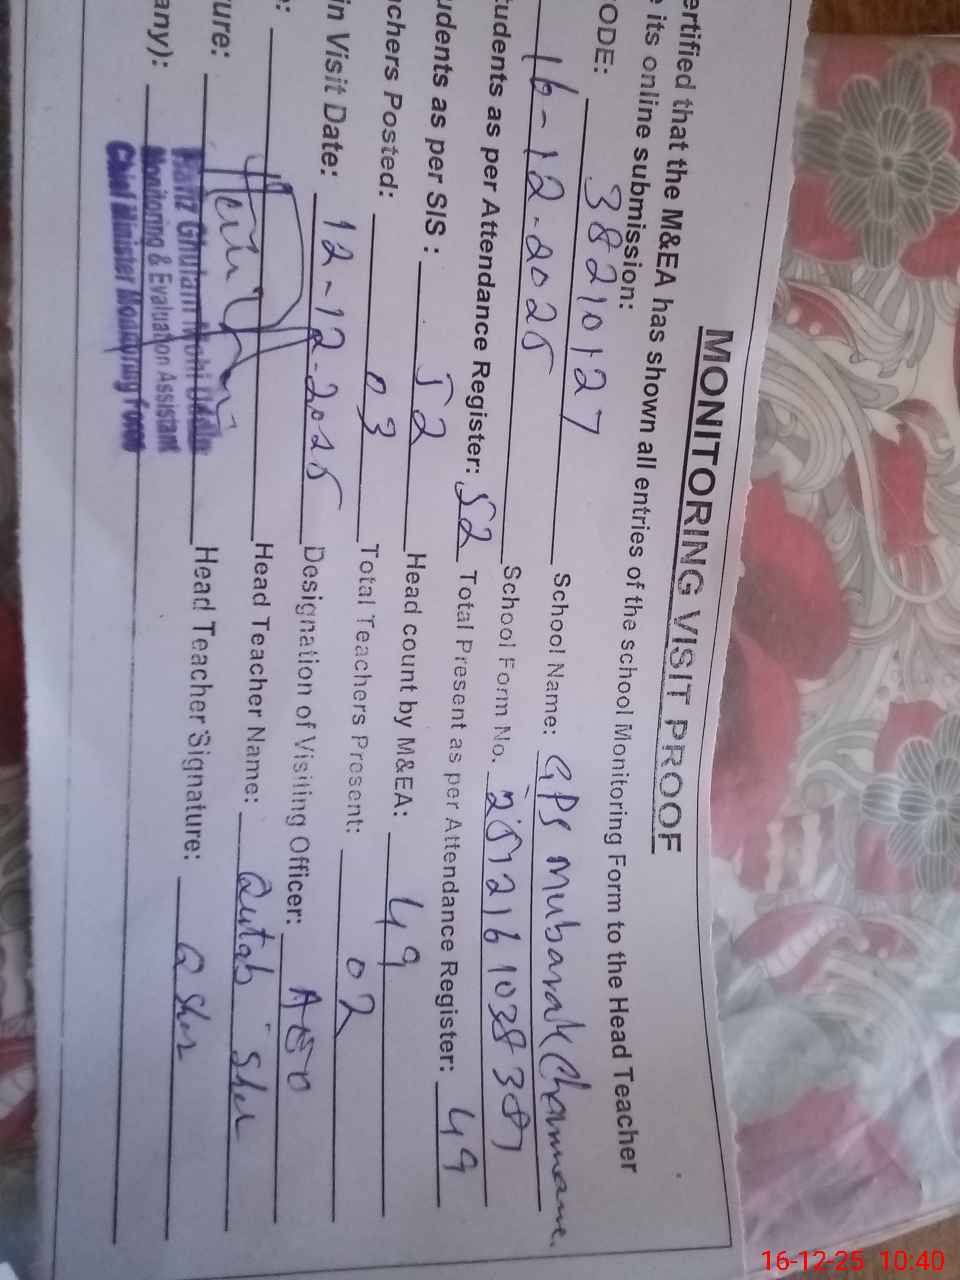 MONITORING VISIT PROOF
ertified that the M&EA has shown all entries of the school Monitoring Form to the Head Teacher
e its online submission:
ODE: 38210127 School Name: GPS Mubarak
16-12-2025 School Form No. 2512161038381
tudents as per Attendance Register: 52 Total Present as per Attendance Register: 49
udents as per SIS : 52 Head count by M&EA: 49
chers Posted: 03 Total Teachers Present: 02
in Visit Date: 12-12-2025 Designation of Visiting Officer: AEO
e: Head Teacher Name: Qutab Sher
ure: Head Teacher Signature: Q Sher
any):
Ghulam Mohi Uddin
Monitoring & Evaluation Assistant
Chief Minister Monitoring Force
16-12-25 10:40